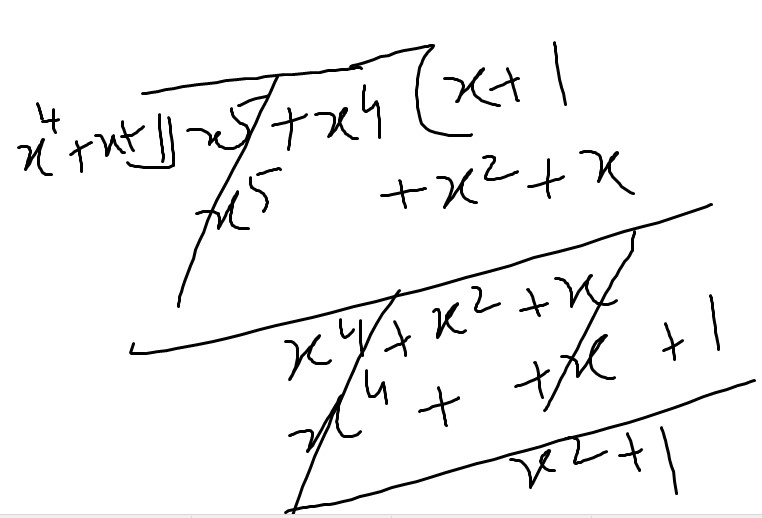 x⁴+x+1)x⁵+x⁴(x+1
x⁵ +x²+x
x⁴+x²+x
x⁴+ +x+1
x²+1